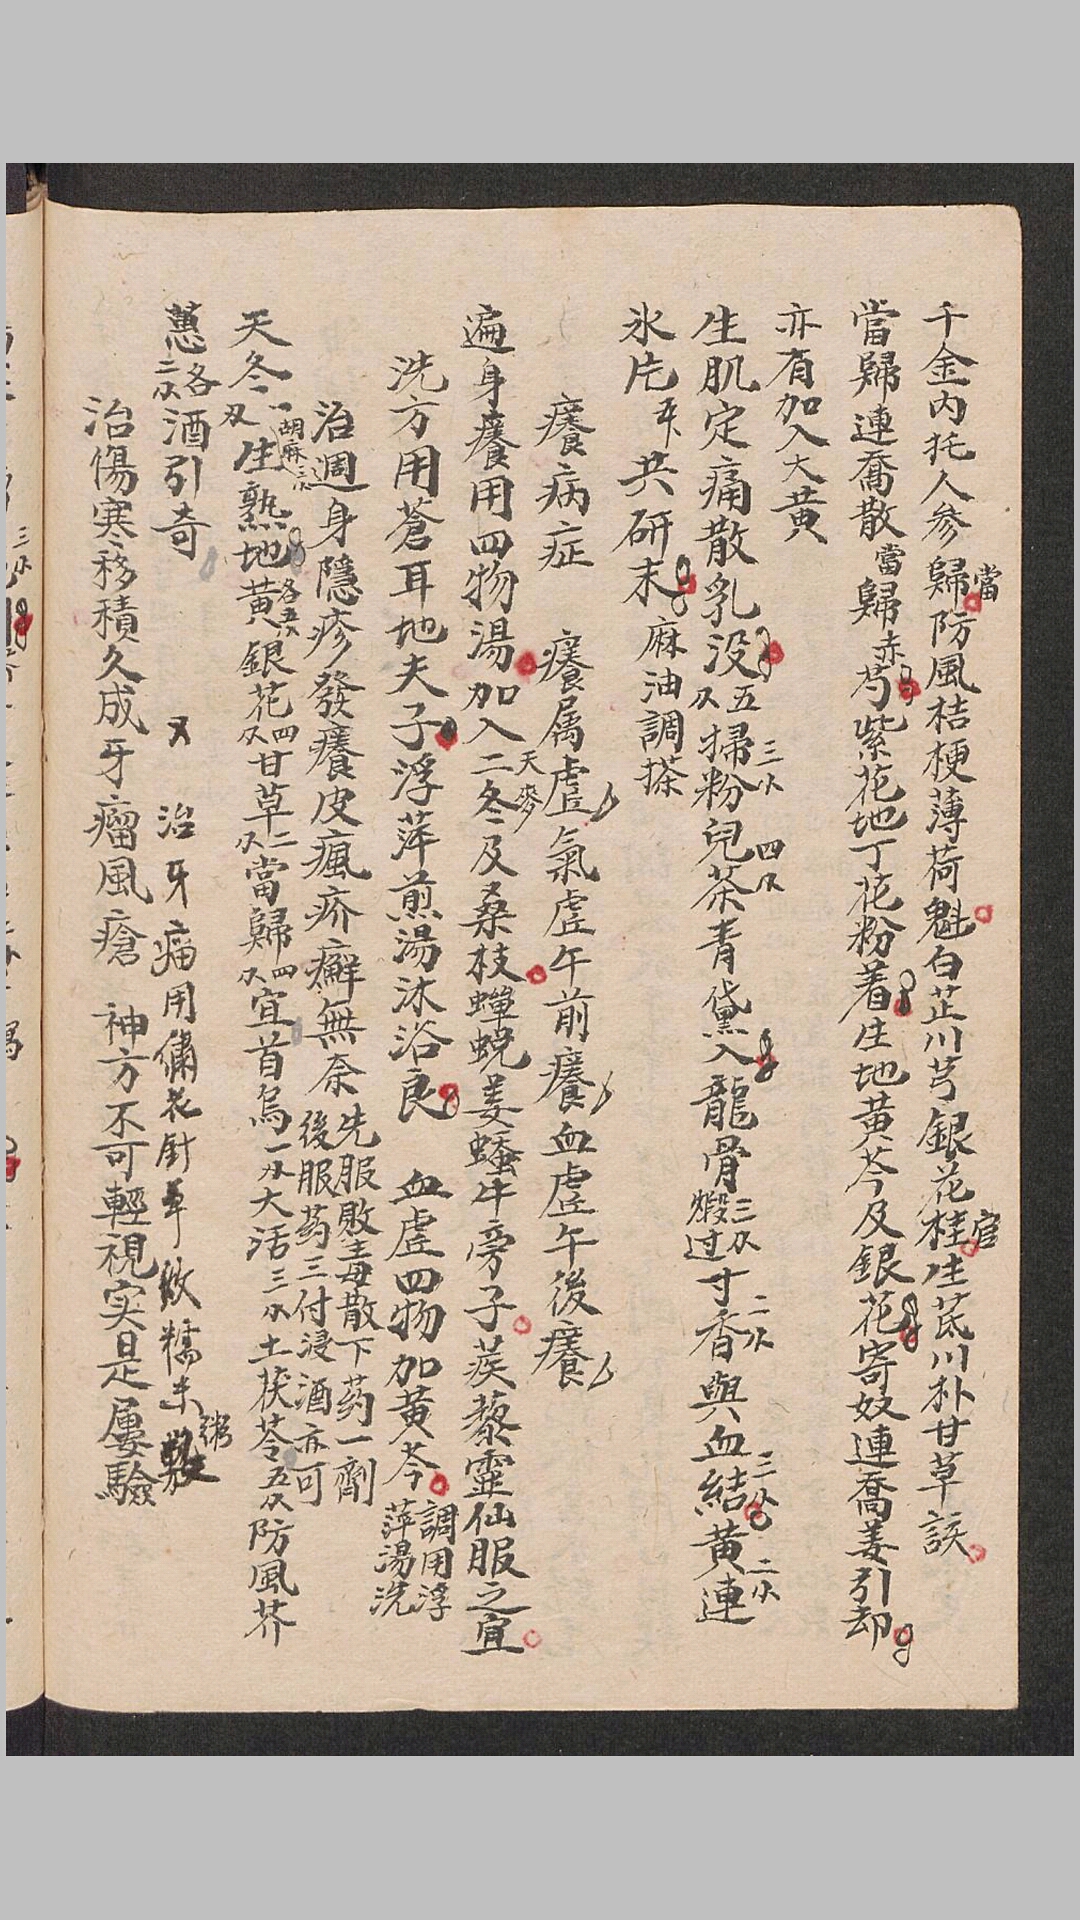 千金内托人参歸當防風桔梗薄荷魁白芷川芎銀花桂官生芪川朴甘草該
當歸連喬散當歸赤芍紫花地丁花粉着生地黄芩及銀花寄奴連喬姜引却
亦有加入大黄
生肌定痛散乳没五掃粉三兒茶四青黛入龍骨三煅过寸香二與血結三黄連二
氷片共研末麻油調搽
癢病症 癢属虛氣虛午前癢血虛午後癢
遍身癢用四物湯加入二冬天麥及桑枝蟬蜕姜蚕牛旁子蒺藜靈仙服之宜
洗方用蒼耳地夫子浮萍煎湯沐浴良 血虛四物加黄芩調用浮萍湯洗
治週身隱疹發癢皮瘋疥癬無奈先服敗毒散下药一劑後服药三付浸酒亦可
天冬一胡麻三生熟地黄各五銀花四甘草二當歸四宜首烏一大活三土茯苓五防風芥
蕙各二酒引奇
又治牙瘤用繡花針草 糯米粥敷
治傷寒移積久成牙瘤風瘡 神方不可輕視实是屢驗